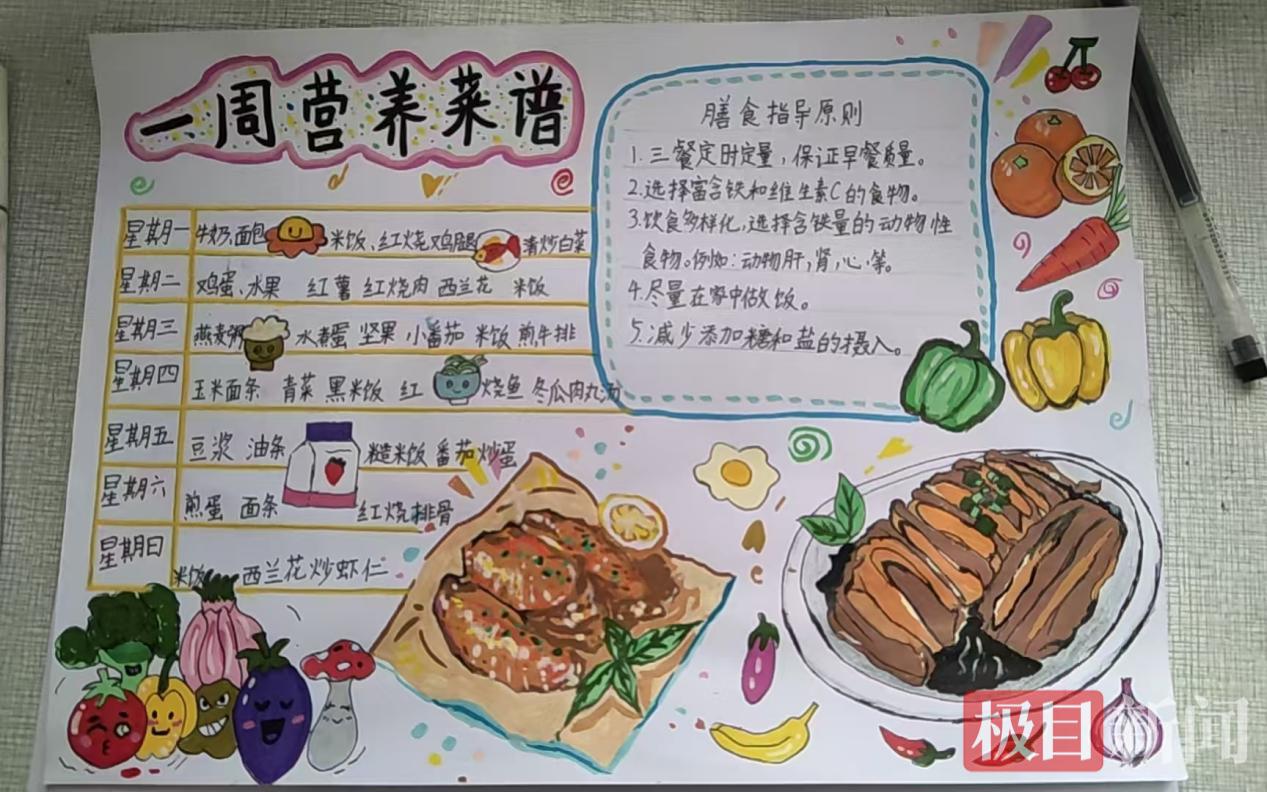 一周营养菜谱
星期一 牛奶、面包 米饭、红烧鸡腿 清炒白菜
星期二 鸡蛋、水果 红薯 红烧肉 西兰花 米饭
星期三 燕麦粥 水煮蛋 坚果 小番茄 米饭 煎牛排
星期四 玉米面条 青菜 黑米饭 红烧鱼 冬瓜肉丸汤
星期五 豆浆 油条 糙米饭 番茄炒蛋
星期六 煎蛋 面条 红烧排骨
星期日 米饭 西兰花炒虾仁
膳食指导原则
1.三餐定时定量,保证早餐质量。
2.选择富含铁和维生素C的食物。
3.饮食多样化,选择含铁量的动物性
食物。例如:动物肝,肾,心,等。
4.尽量在家中做饭。
5.减少添加糖和盐的摄入。
极目新闻